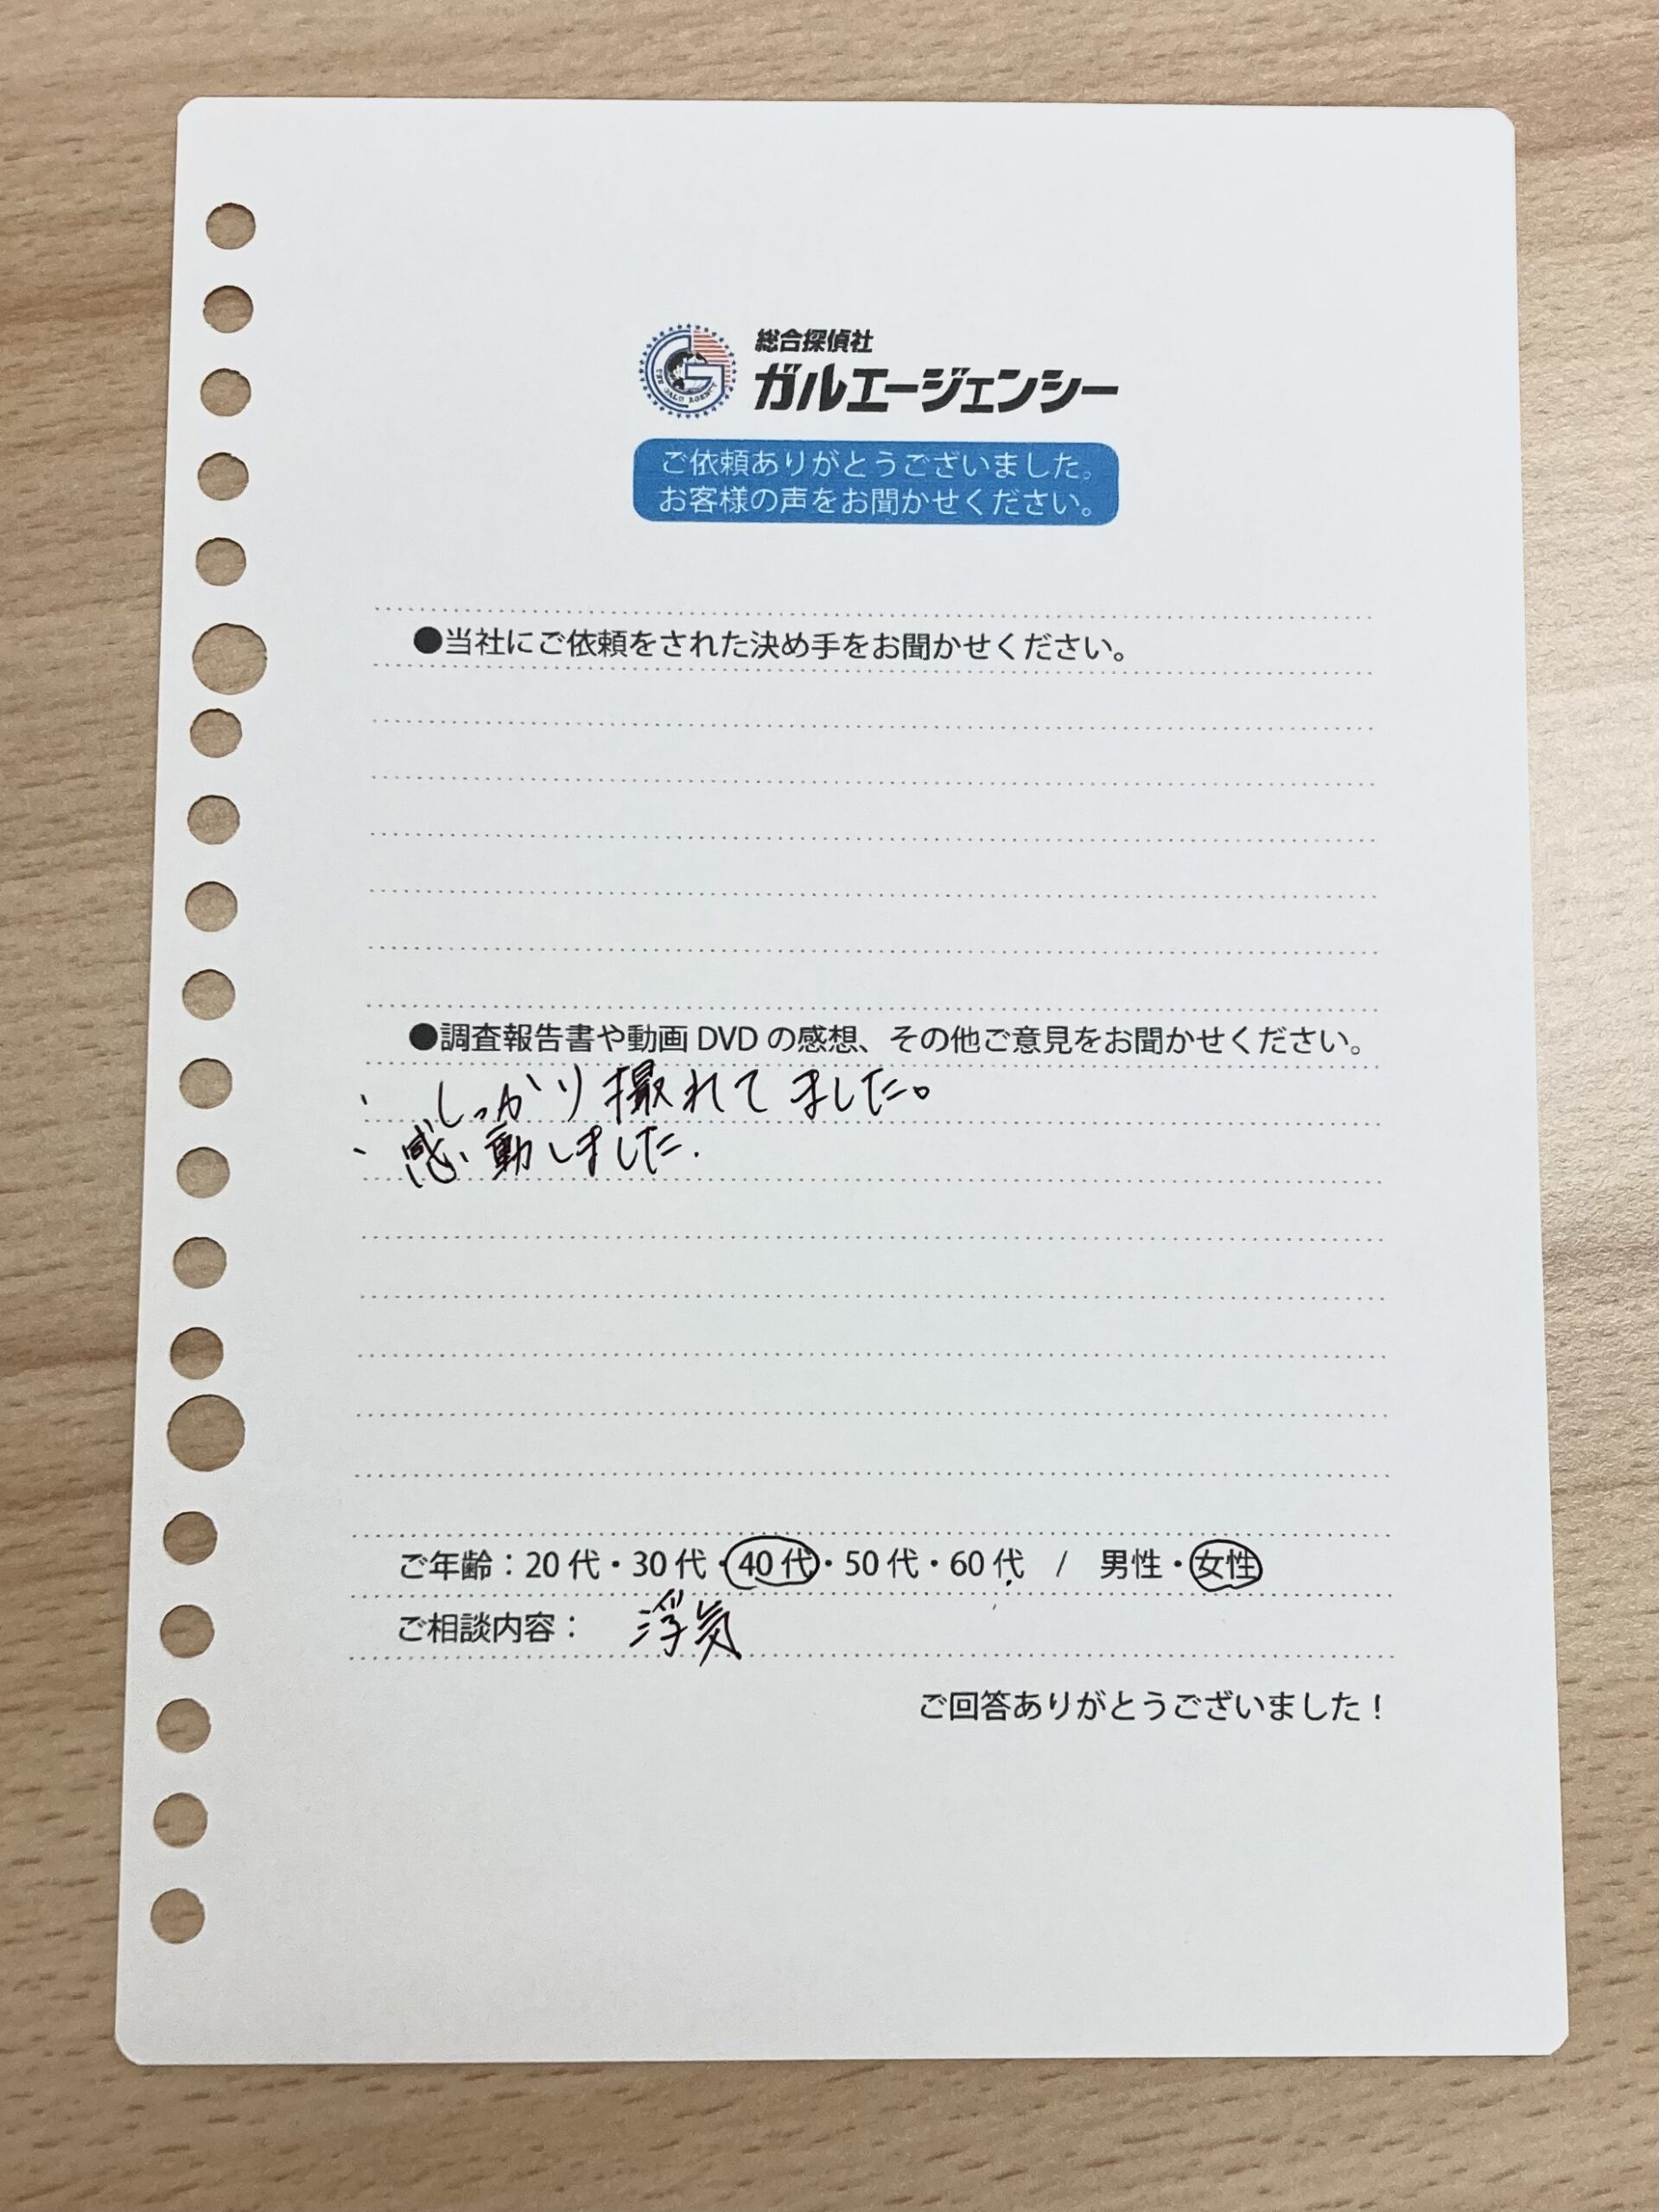 総合探偵社
ガルエージェンシー
ご依頼ありがとうございました。
お客様の声をお聞かせください。
●当社にご依頼をされた決め手をお聞かせください。
●調査報告書や動画DVDの感想、その他ご意見をお聞かせください。
・しっかり撮れてました。
・感動しました.
ご年齢：20代・30代・40代・50代・60代 / 男性・女性
ご相談内容： 浮気
ご回答ありがとうございました！